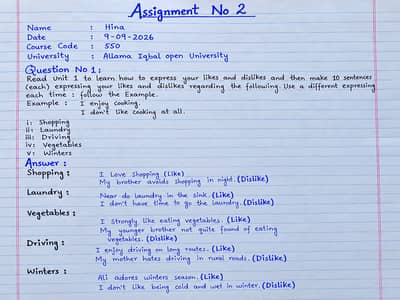 Assignment No 2
Name : Hina
Date : 9-09-2026
Course Code : 550
University : Allama Iqbal open University
Question No 1:
Read Unit 1 to learn how to express your likes and dislikes and then make 10 sentences
(each) expressing your likes and dislikes regarding the following. Use a different expressing
each time : follow the Example.
Example : I enjoy cooking.
I don't like cooking at all.
i: Shopping
ii: Laundry
iii: Driving
iv: Vegetables
v: Winters
Answer :
Shopping : I Love shopping (Like)
My brother avoids shopping in night. (Dislike)
Laundry : Near do laundry in the sink. (Like)
I don't have time to go the laundry. (Dislike)
Vegetables :
I Strongly like eating vegetables. (Like)
My younger brother not quite found of eating
vegetables. (Dislike)
Driving : I enjoy driving on long routes. (Like)
My mother hates driving in rural roads. (Dislike)
Winters : Ali adores winters season. (Like)
I don't like being cold and wet in winter. (Dislike)